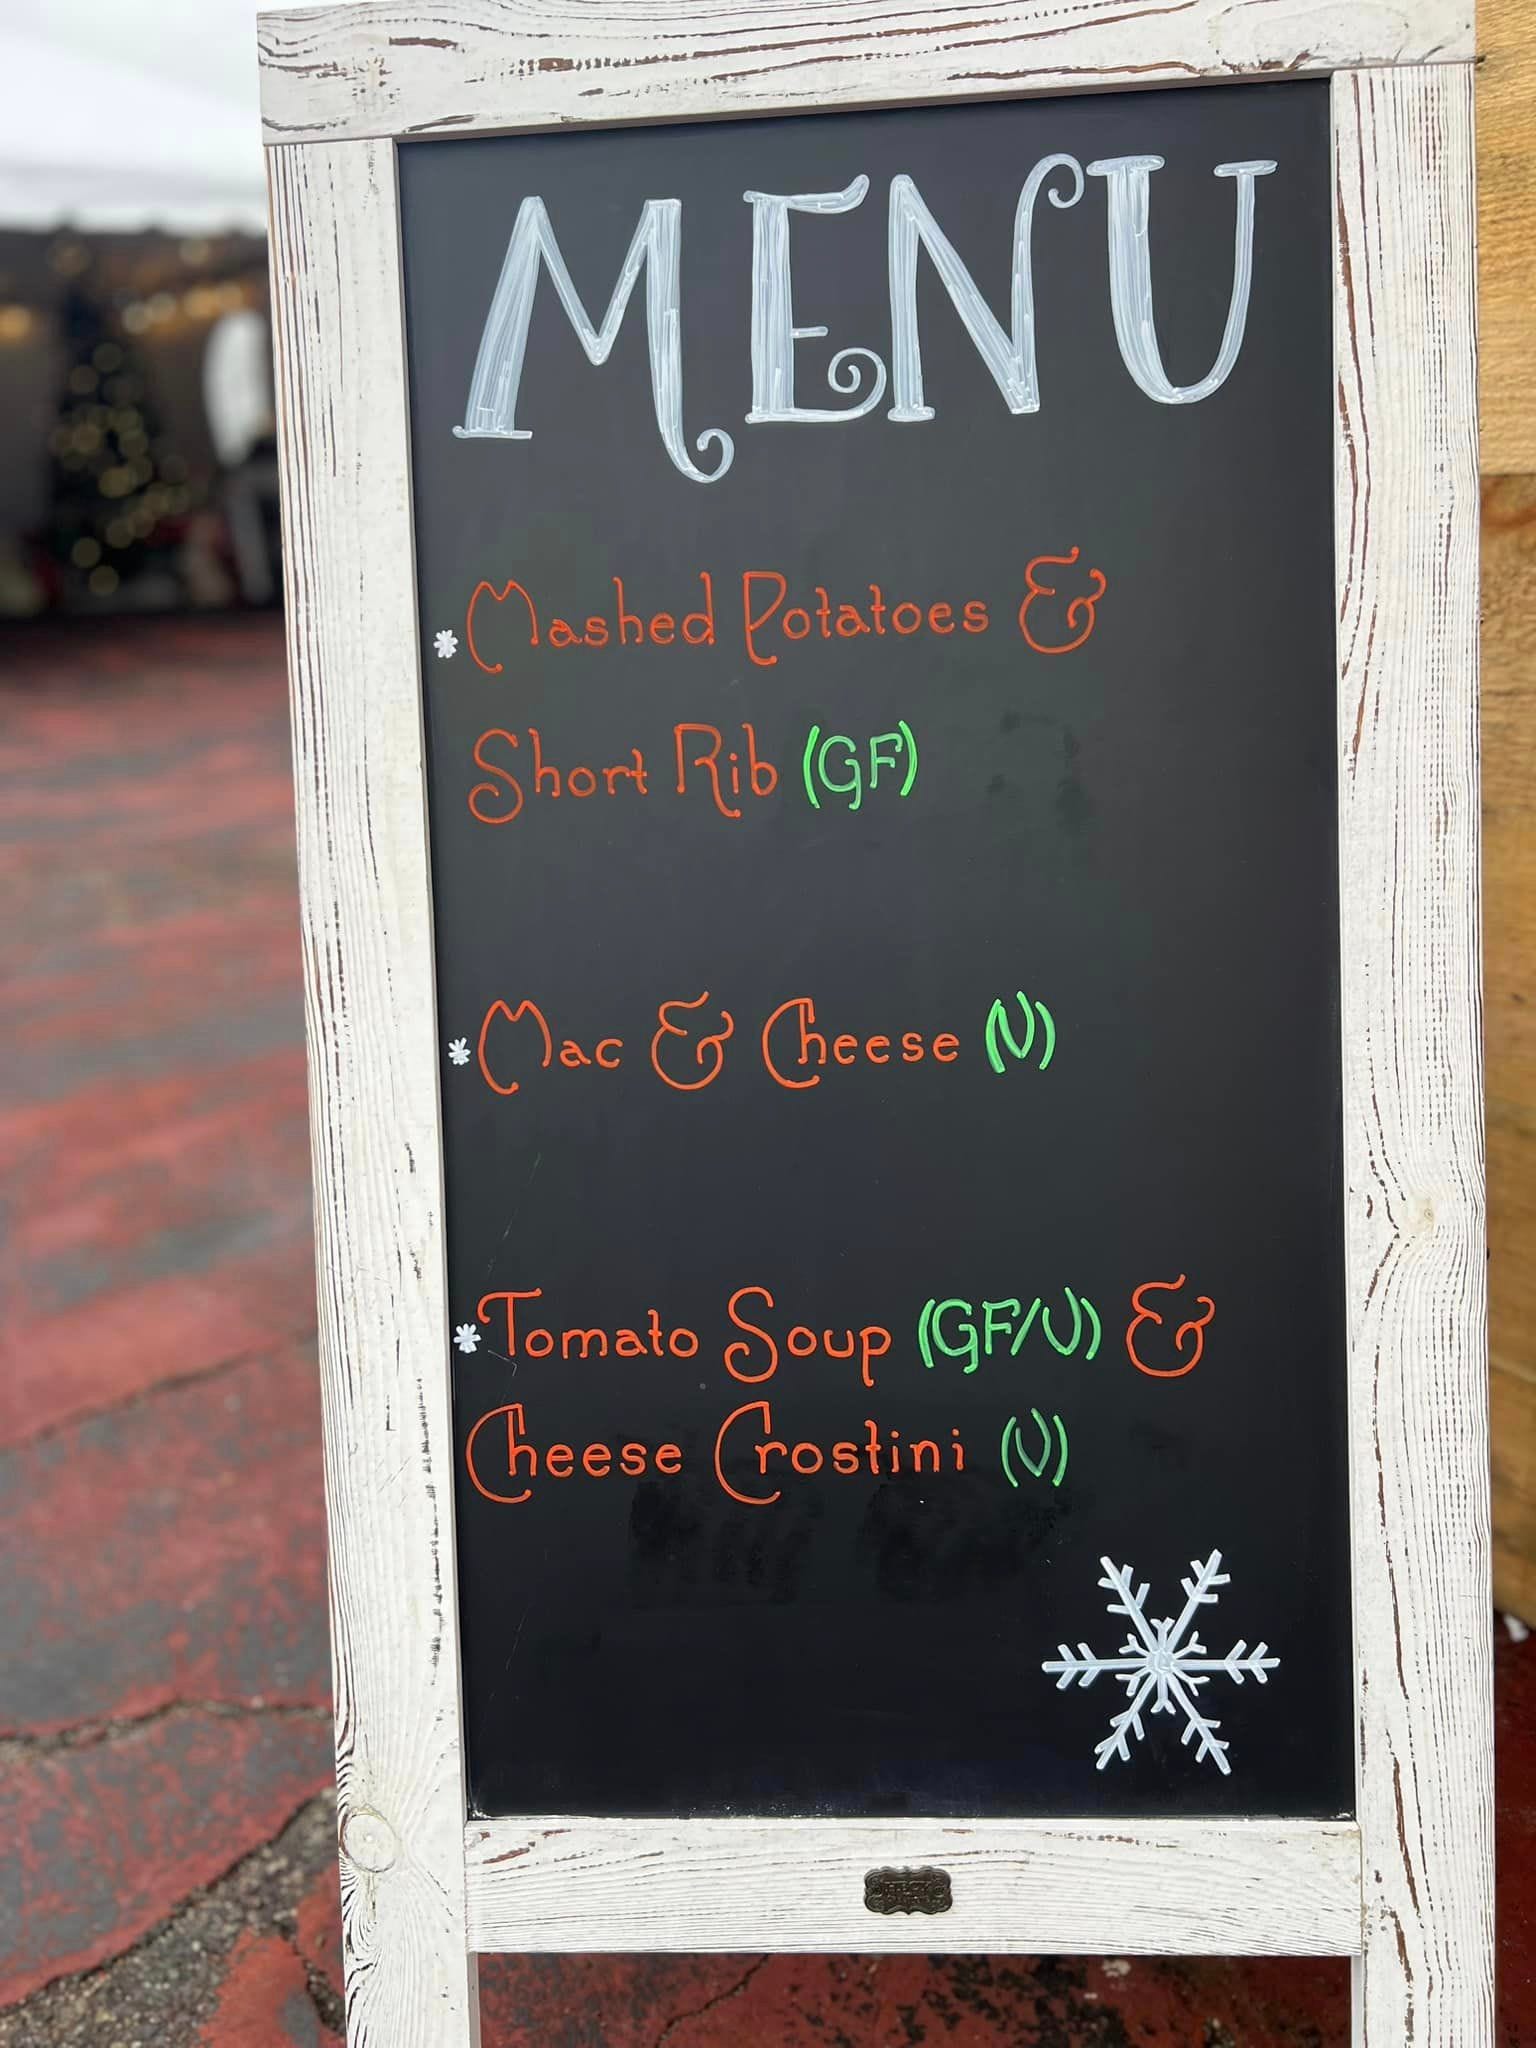 MENU
*Mashed Potatoes &
Short Rib (GF)
*Mac & Cheese (V)
*Tomato Soup (GF/V) &
Cheese Crostini (V)